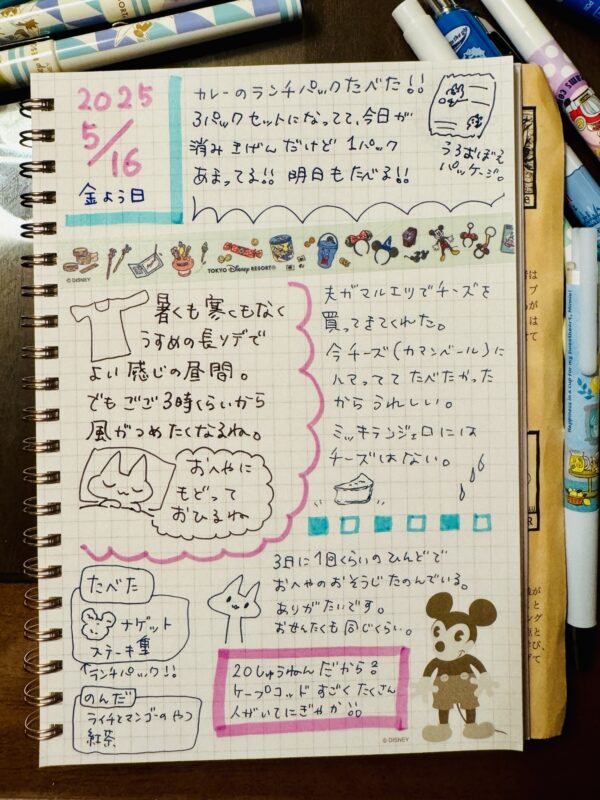 2025
5/16
金よう日
カレーのランチパックたべた!!
3パックセットになってて、今日が
消み きげんだけど 1パック
あまってる!! 明日もたべる!!
うろおぼえ
パッケージ。
© DISNEY
TOKYO Disney RESORT®
暑くも寒くもなく
うすめの長ソデで
よい感じの昼間。
でもごご3時くらいから
風がつめたくなるね。
おへやに
もどって
おひるね
夫がマルエツでチーズを
買ってきてくれた。
今チーズ(カマンベール)に
ハマってて たべたかった
から うれしい。
ミッキランジェロには
チーズはない。
3日に1回くらいのひんどで
おへやのおそうじたのんでいる。
ありがたいです。
おせんたくも同じくらい。
たべた
ナゲット
ステーキ重
ランチパック!!
のんだ
ライチとマンゴーのやつ
紅茶
20しゅうねんだから?
ケープコッド すごくたくさん
人がいてにぎやか!!
© DISNEY
Happiness in a cup for my sweetheart, Minnie!